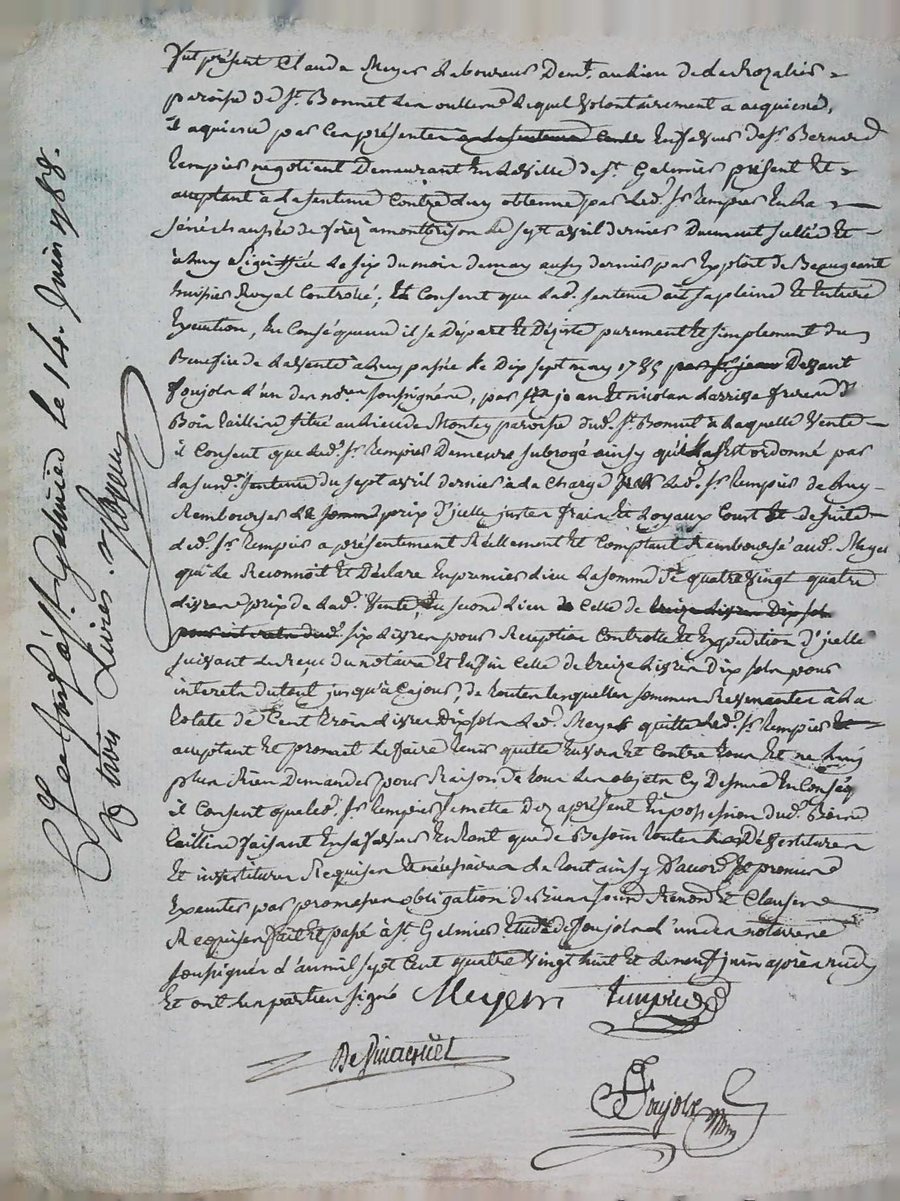 fut présent Claude Meyer Laboureur Demt. au lieu de
paroisse de St. Bonnet Lequel volontairement a acquiescé,
il aquiesce par Ces présentes En faveur de Sr. Bernard
Tempier negotiant Demeurant En la ville de St. Galmier présent Et
acceptant à la sentence Contre Luy obtenue par Led. Sr. Tempier En La
sénéchaussée de forèz a montbrison Le sept avril dernier Duement scellée Et
à Luy signiffiée Le six du mois de may aussy dernier par Exploit de Beaugeant
huissier Royal Controllé, Et Consent que Lad. sentence ait sa pleine Et Entiere
Execution, En Conséquence il se Départ Et Désiste purement Et simplement du
Benefice de La vente à Luy passée Le Dix sept may 1785 Devant
foujols L'un des nores. soussignés, par jean Et nicolas freres Du
Bois taillis situé au Lieu de paroisse dud. St. Bonnet à Laquelle vente
il Consent que Led. Sr. Tempier Demeure subrogé ainsy qu'il Est ordonné par
La susd. sentence du sept avril dernier à La Charge Led. Sr. Tempier de Luy
Rembourser Le prix d'icelle justes frais Et Loyaux Cout Et de suite
Led. Sr. Tempier a présentement Réellement Et Comptant Remboursé aud. Meyer
qui Le Reconnoit Et Déclare En premier Lieu La somme de quatre vingt quatre
Livres prix de Lad. vente, En second Lieu Celle de treize Livres Dix sols
six Livres pour Reception Controlle Et Expedition d'icelle
suivant Le Reçu du notaire Et Enfin Celle de treize Livres Dix sols pour
interets du tout jusqu'à Ce jour, de toutes Lesquelles sommes Revenantes à La
totale de Cent trois Livres Dix sols Led. Meyer quitte Led. Sr. Tempier
acceptant Et promet Le faire tenir quitte Envers Et Contre tous Et ne Luy
plus Rien Demander pour Raison de tous Les objets Cy Dessus En Conséq
il Consent que Led. Sr. Tempier se mette Dez à présent En possession dud. Bois
taillis faisant En sa faveur En tant que de Besoin toutes Dévestitures
Et investitures Requises Et nécessaires Le tout ainsy D'accord Et promis
Executer par promesses obligation de Biens Renond. Et Clauses
Requises fait Et passé à St. Galmier Etude de foujols L'un des notaires
soussignés L'an mil sept Cent quatre vingt huit Et Le neuf juin après midy
Et ont Les parties signé Meyer Tempier
foujols
à St. Galmier Le 14. Juin 1788.
trois Livres.